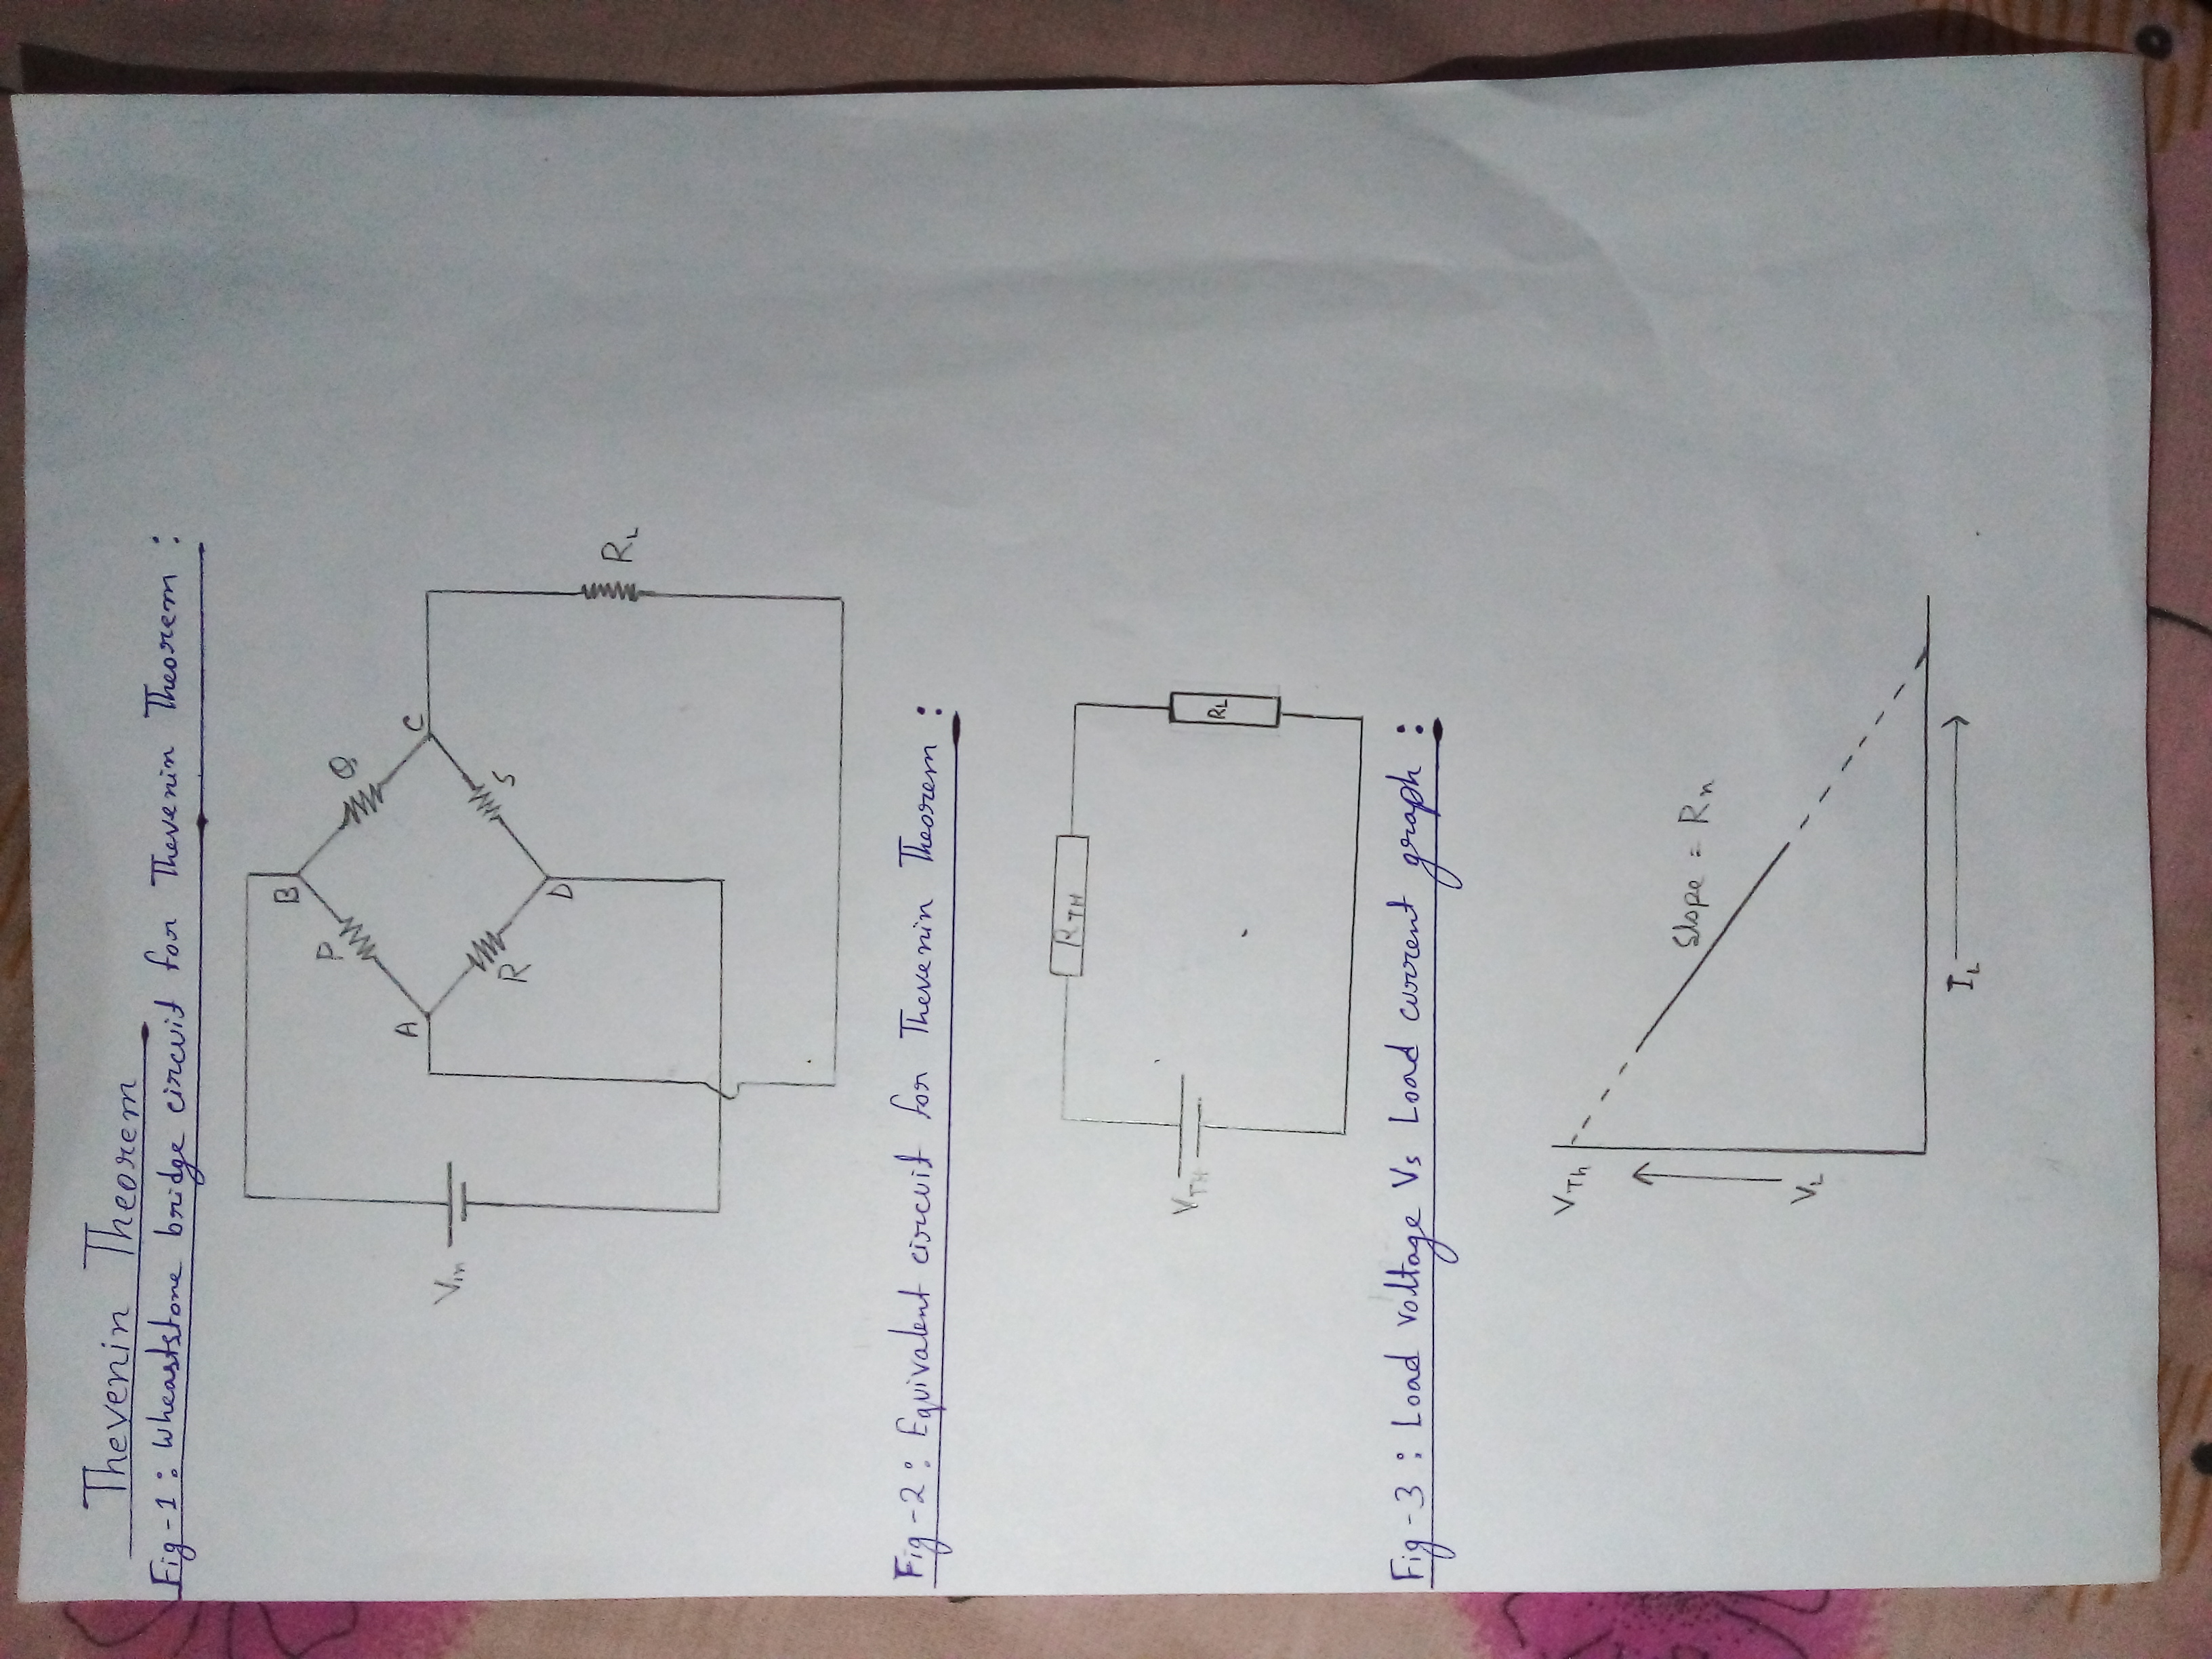 Thevenin Theorem
Fig-1: Wheaststone bridge circuit for Thevenin Theorem :
B
P
Q
A
C
Vin
R
S
D
RL
Fig-2: Equivalent circuit for Thevenin Theorem :
RTH
VTH
RL
Fig-3: Load voltage Vs Load current graph :
VTh
Slope = Rn
VL
IL